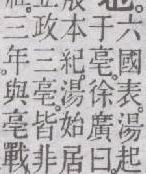 六國表。湯起
于亳。徐廣曰。
本紀。湯始居
政三亳皆非
三年。與亳戰